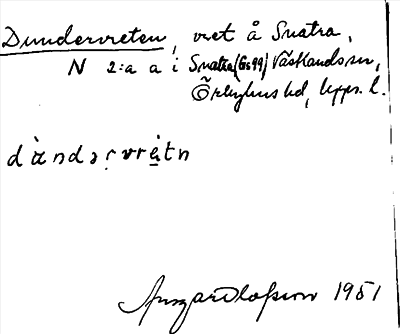 Dundervreten, vret å Snatra,
N 2:a a i Snatra (Gs 99) Västlands sn,
Örbyhus hd, Upps. l.
dàndərvrètn
Olofsson 1951